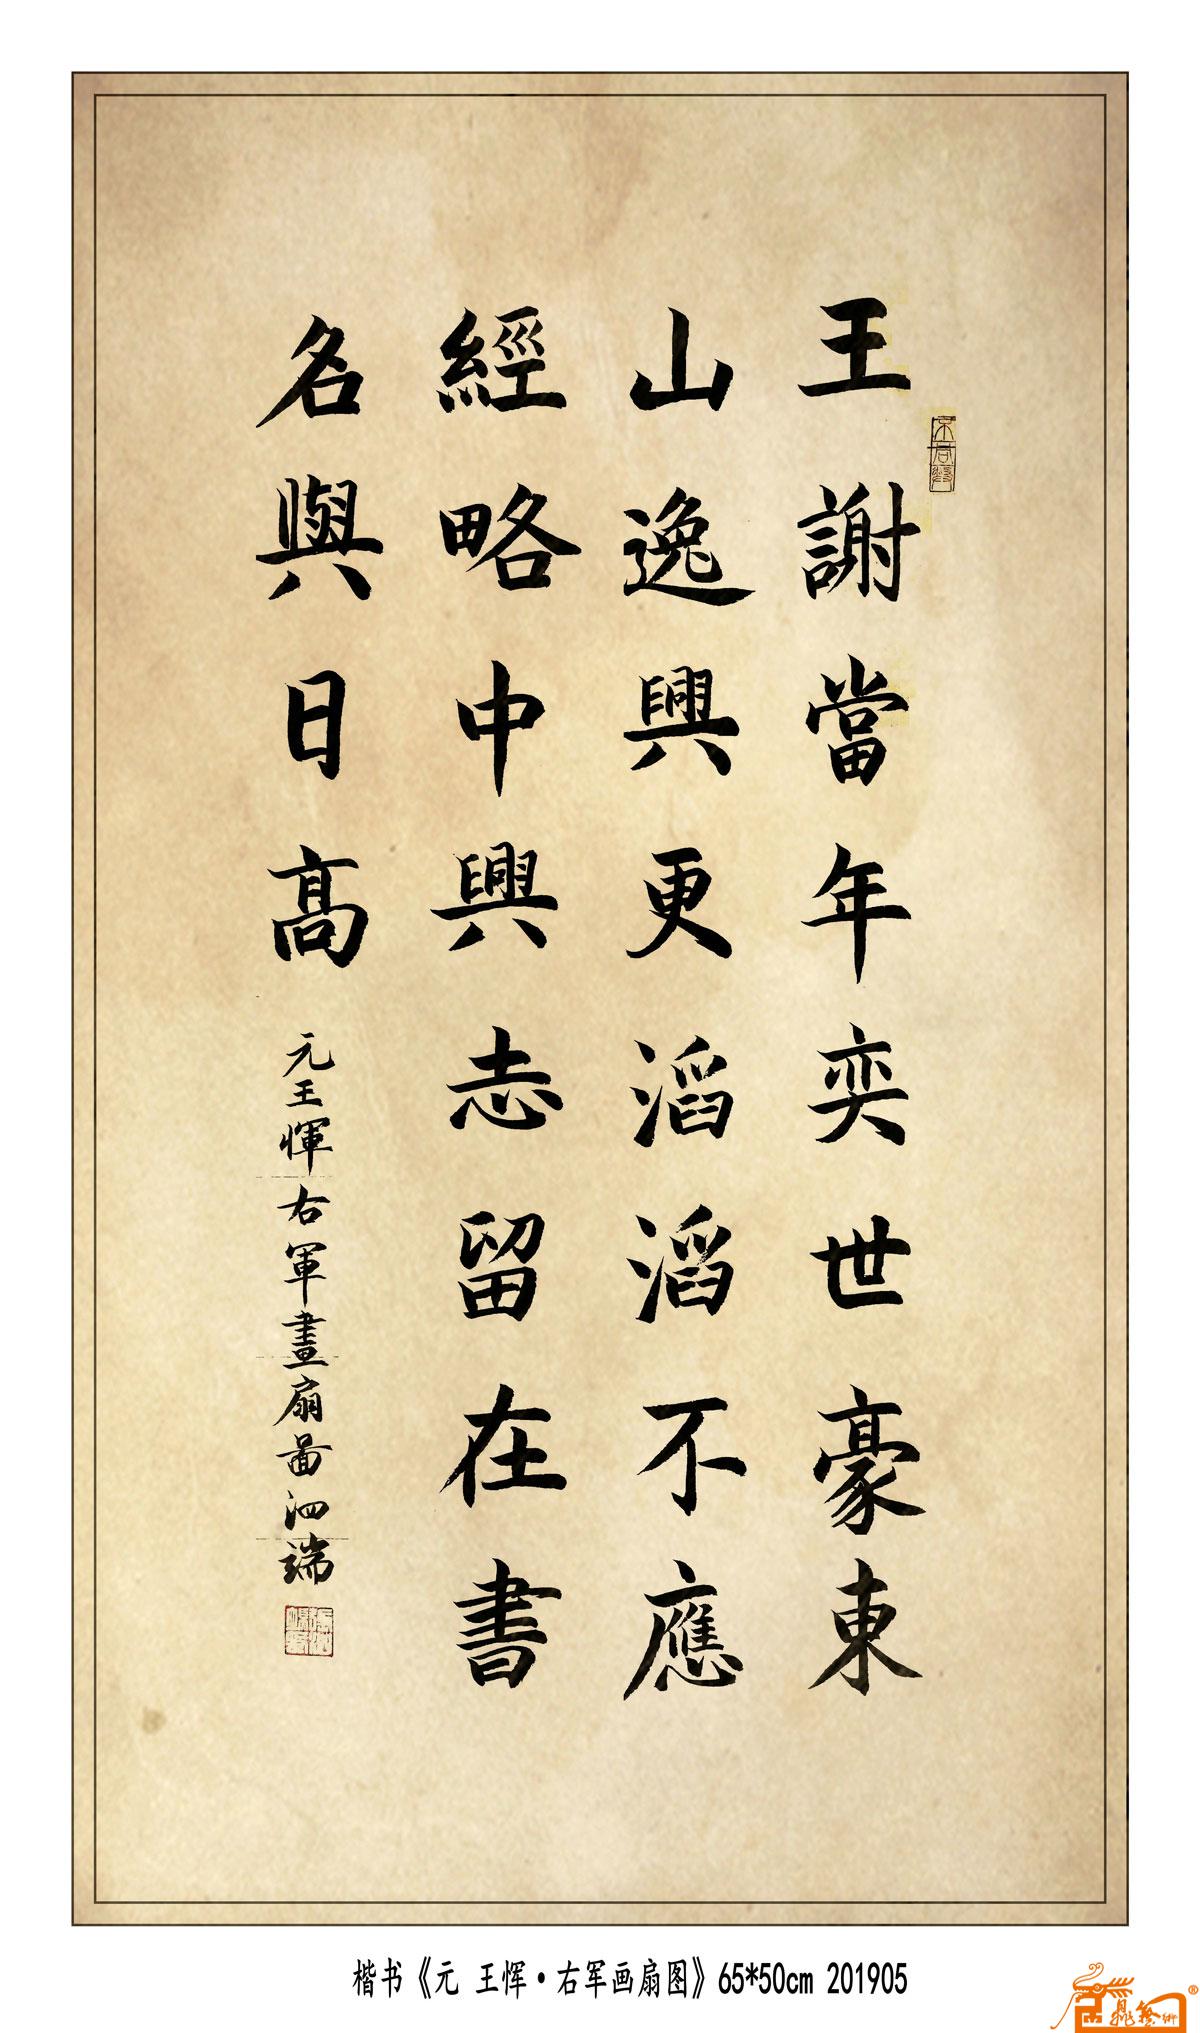 王謝當年奕世豪東
山逸興更滔滔不應
經略中興志留在書
名與日高
元王惲右軍畫扇啚泗端
楷书《元 王恽·右军画扇图》65*50cm 201905